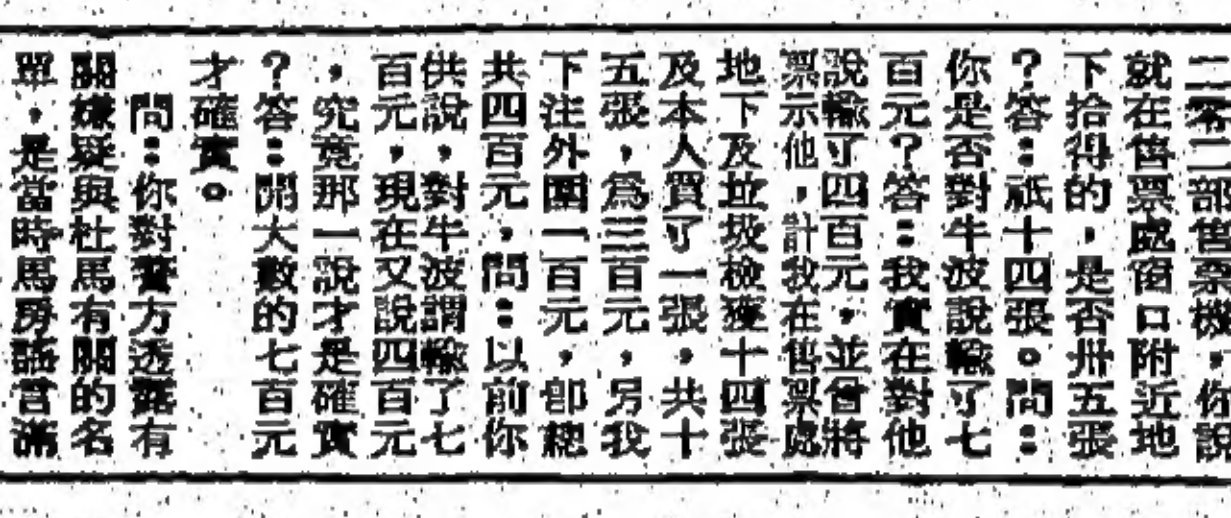 二零二部售票機，你說
就在售票處窗口附近地
下拾得的，是否卅五張
？答：祇十四張。問：
你是否對牛波說輸了七
百元？答：我實在對他
說輸了四百元，並曾將
票示他，計我在售票處
地下及垃圾檢獲十四張
及本人買了一張，共十
五張，爲三百元，另我
下注外圍一百元，即總
共四百元，問：以前你
供說，對牛波謂輸了七
百元，現在又說四百元
，究竟那一說才是確實
？答：開大數的七百元
才確實。
問：你對警方透露有
關嫌疑與杜馬有關的名
單，是當時馬房